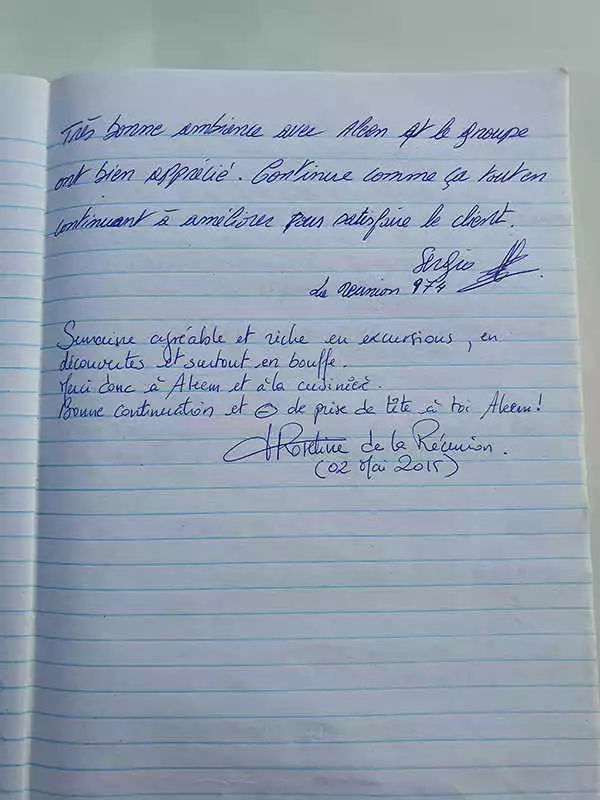 Très bonne ambiance avec Aleem et le groupe
ont bien apprécié. Continue comme ça tout en
continuant à améliorer pour satisfaire le client.
Sergio
La Reunion 974
Semaine agréable et riche en excursions, en
découvertes et surtout en bouffe.
Merci donc à Aleem et à la cuisinière.
Bonne continuation et ⊖ de prise de tête à toi Aleem!
Roseline de la Réunion.
(02 Mai 2015)